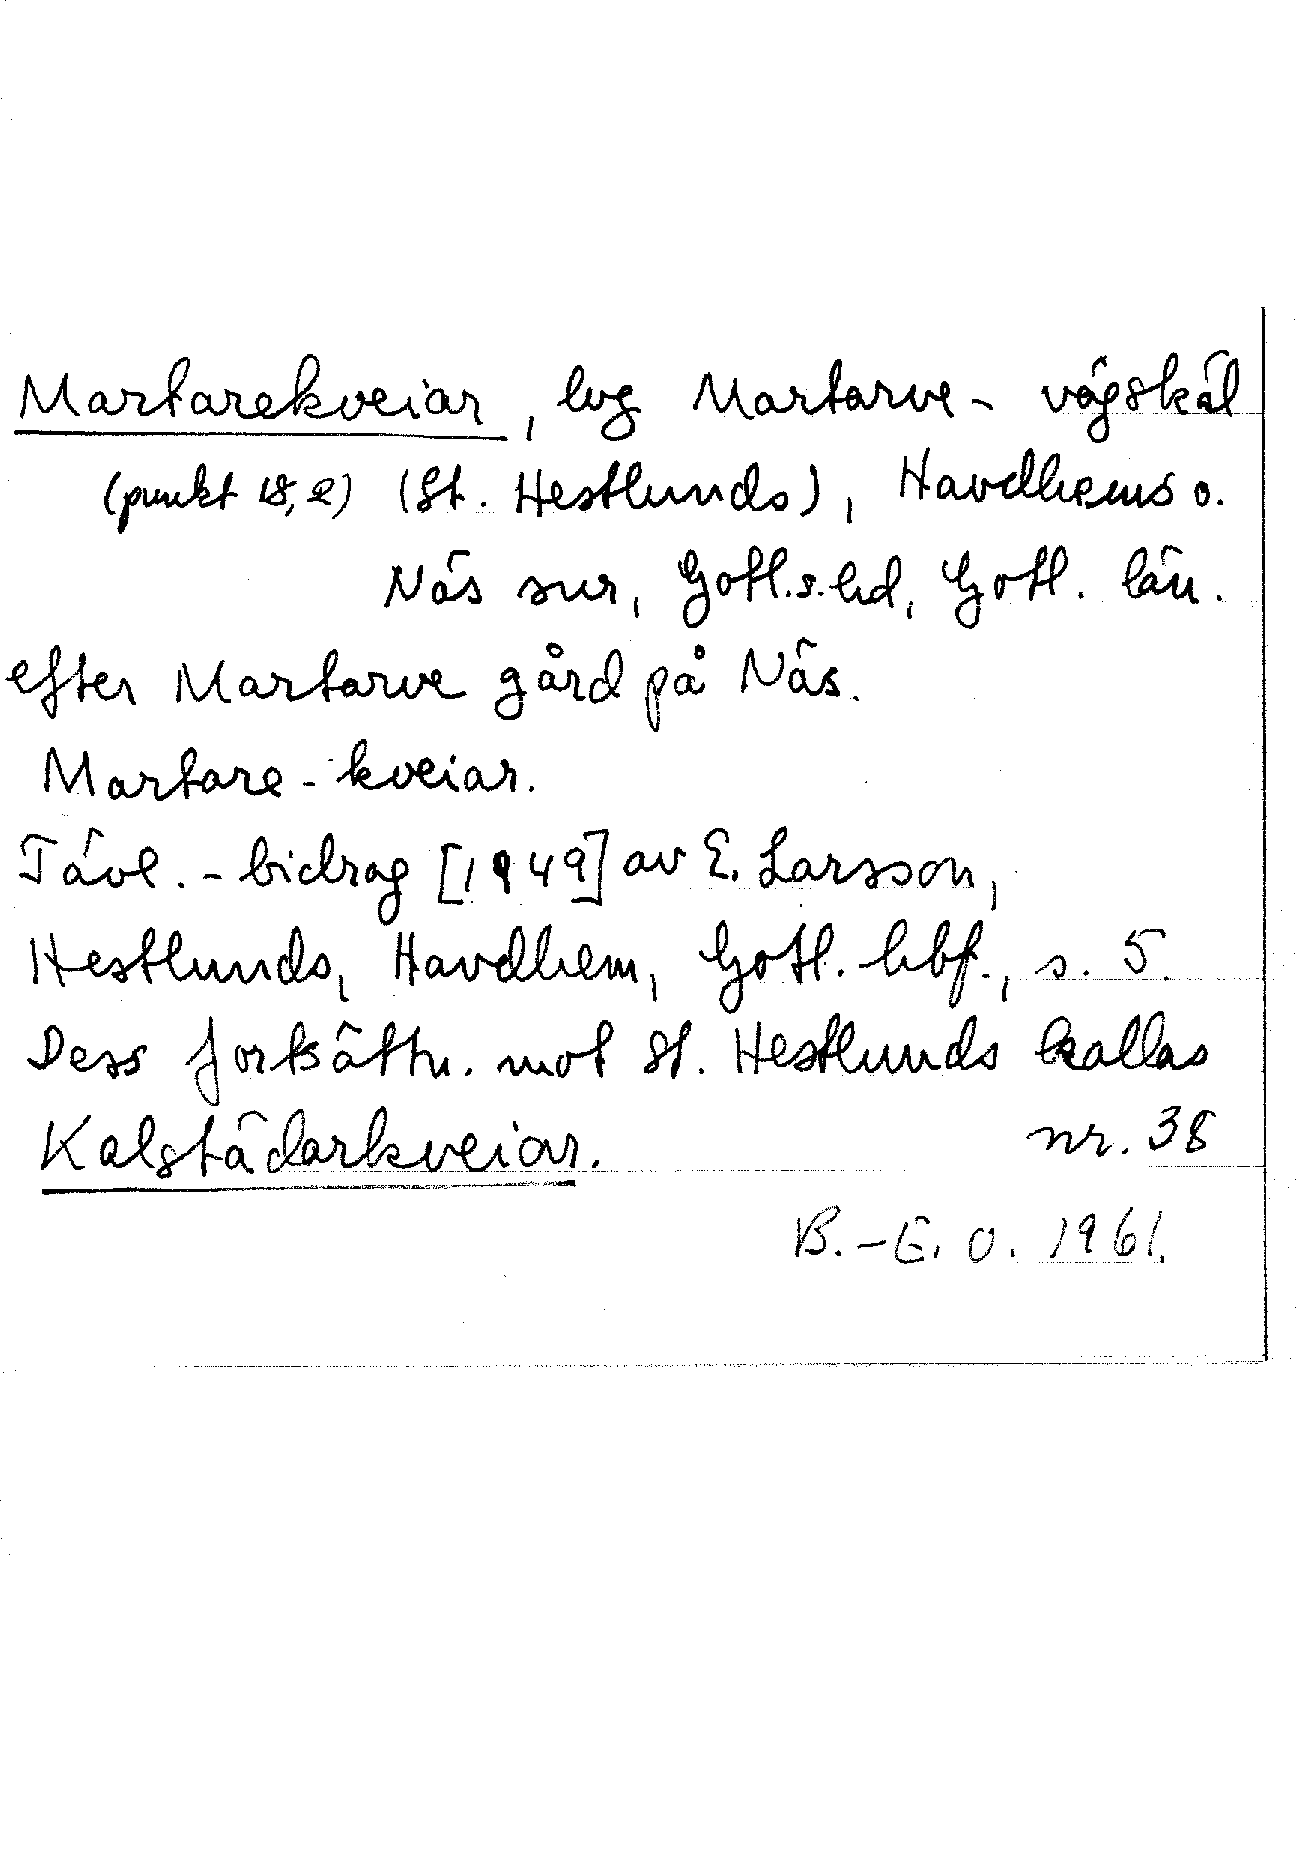 Martarekveiar, lvg Martarve- vägskäl
(punkt 18,2) (St. Hestlunds), Havdhems o.
Näs snr, Gotl.s.hd, Gotl. län.
efter Martarve gård på Näs.
Martare-kveiar.
Tävl.-bidrag [1949] av E. Larsson,
Hestlunds, Havdhem, Gotl. hbf., s. 5.
Dess fortsättn. mot St. Hestlunds kallas
Kalstädarkveiar. nr. 38
B.-E. O. 1961.